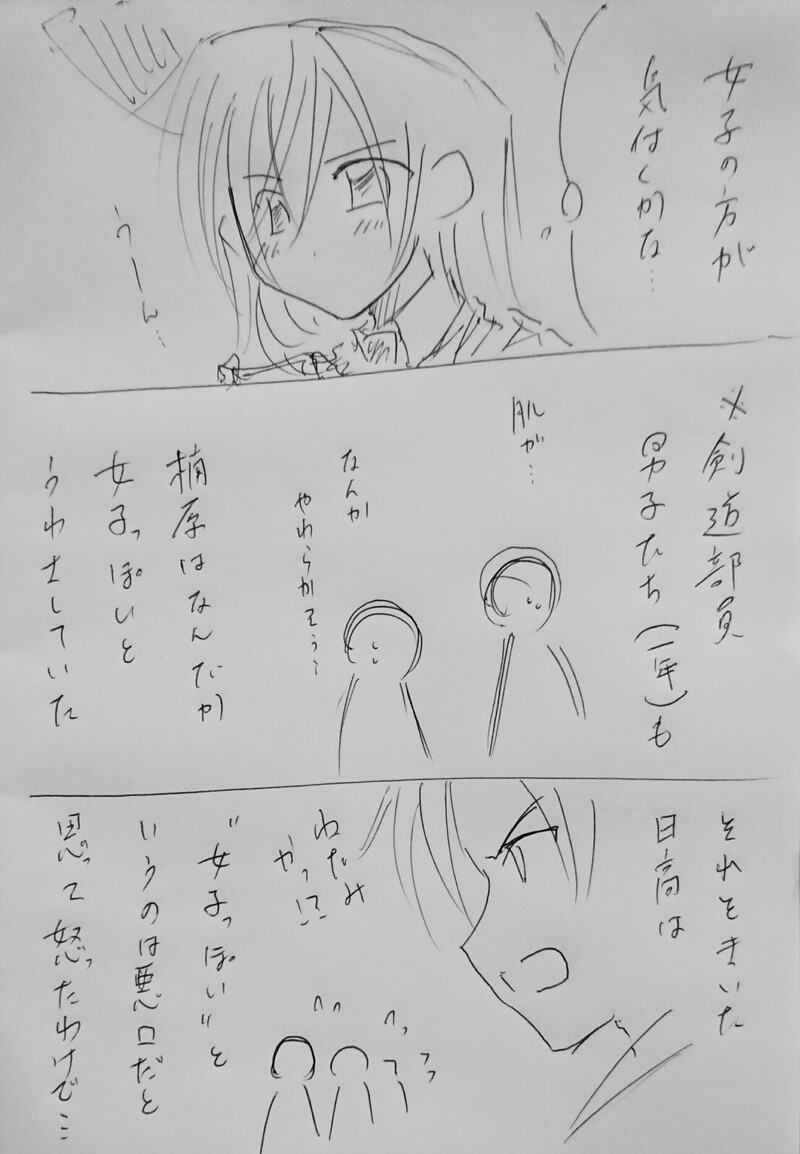 女子の方が
気付くかな…
うーん…
※剣道部員
男子たち(一年)も
肌が…
なんか
やわらかそう…
楠原はなんだか
女子っぽいと
うわさしていた
それをきいた
日高は
ねたみ
やって!?
"女子っぽい"と
いうのは悪口だと
思って怒ったわけで…